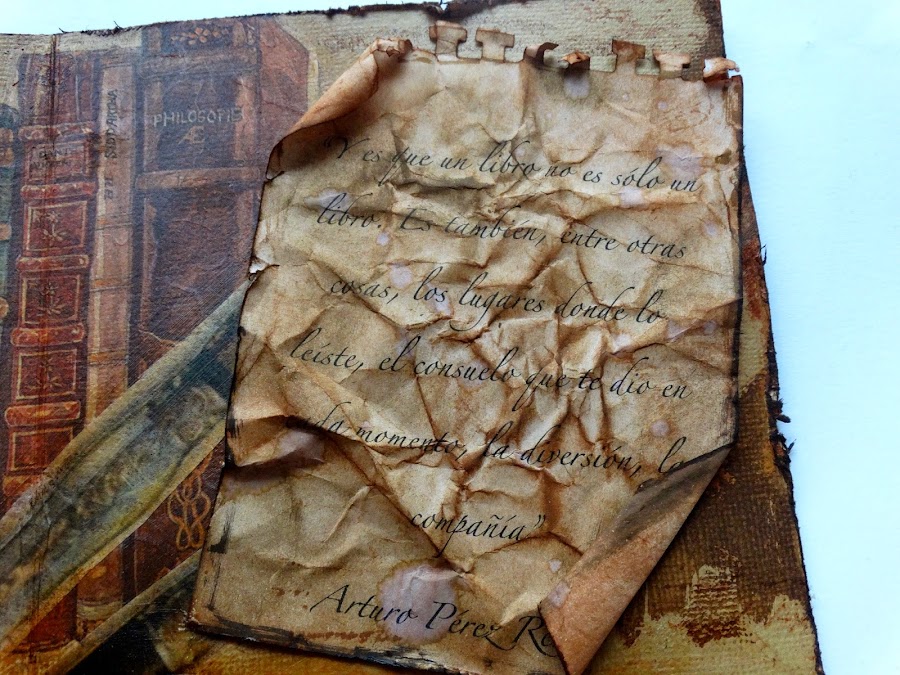 PHILOSOFIÆ
"Y es que un libro no es sólo un
libro. Es también, entre otras
cosas, los lugares donde lo
leíste, el consuelo que te dio en
da momento, la diversión, la
compañía"
Arturo Pérez Re